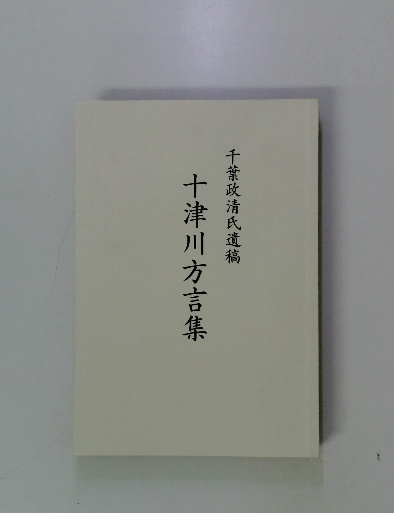 千葉政清氏遺稿
十津川方言集